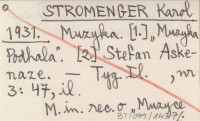 STROMENGER Karol
1931. Muzyka. [1.] „Muzyka
Podhala". [2.] Stefan Aske-
naze. — Tyg. Il., nr
3: 47, il.
M. in. rec. o „Muzyce